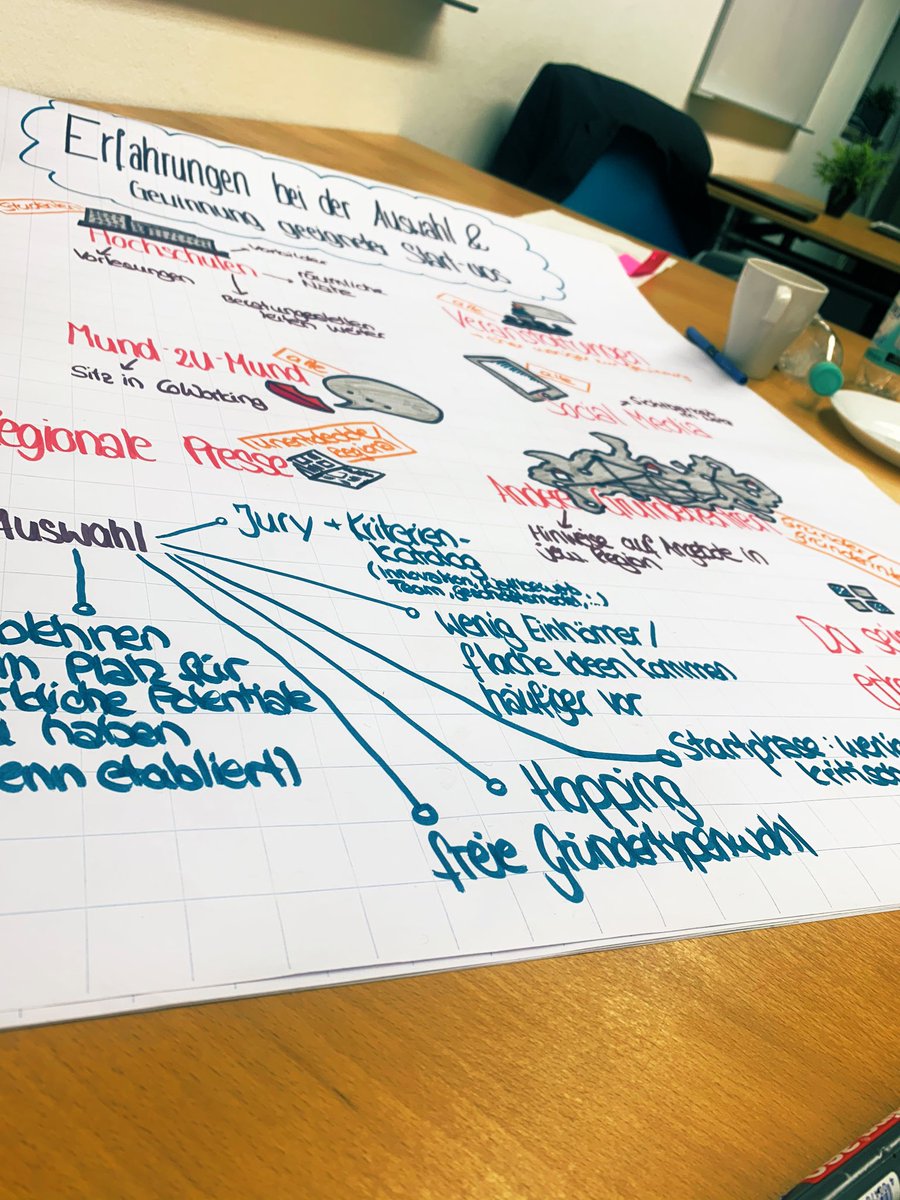 Erfahrungen bei der Auswahl &
Gewinnung geeigneter Start-ups
Hochschulen
Vorlesungen
räumliche
Nähe
Beratungsstellen
leiten weiter
alle
Veranstaltungen
Mund-zu-Mund
alle
Sitz in CoWorking
alle
Social Media
Regionale Presse
unentdeckte/
Regional
Andere
Hinweise auf Angebote in
Region
Gründer/
Auswahl
Jury + Kriterien-
katalog
(Innovation,
Team, Geschäftsmodel, ...)
wenig Einhörner/
flache Ideen kommen
häufiger vor
Startphase: weni
kritisch
Hopping
freie Gründertypenwahl
blehnen
m Platz für
Potentiale
haben
enn etabliert)
Da